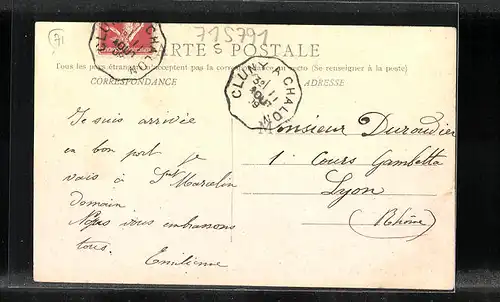 71
715791
CARTE POSTALE
Tous les pays étrangers n'acceptent pas la correspondance au recto (Se renseigner à la poste)
CORRESPONDANCE
ADRESSE
CLUNY A CHALON
CLUNY A CHALON
Je suis arrivée
en bon port je
vais à St Marcelin
domain
Nous vous embrassons
tous.
Emilienne
Monsieur Duroudier
1 Cours Gambetta
Lyon
(Rhône)